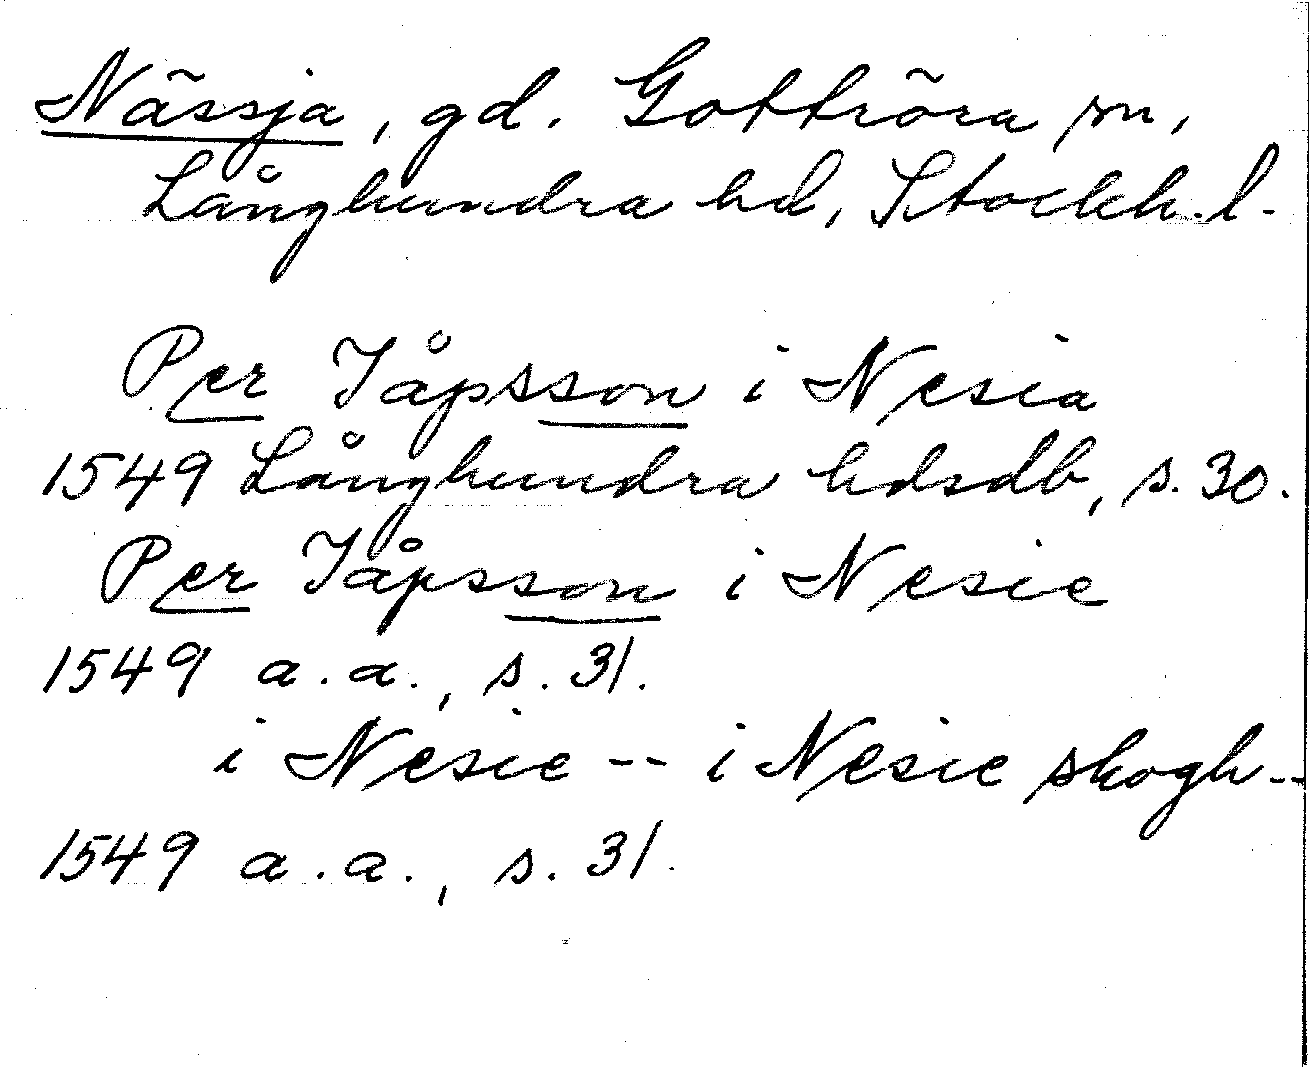 Nässja, gd. Gottröra sn,
Långhundra hd, Stockh. l.
Per Jåpsson i Nesia
1549 Långhundra hdsdb, s. 30.
Per Jåpsson i Nesie
1549 a.a., s. 31.
i Nesie -- i Nesie skogh --
1549 a.a., s. 31.